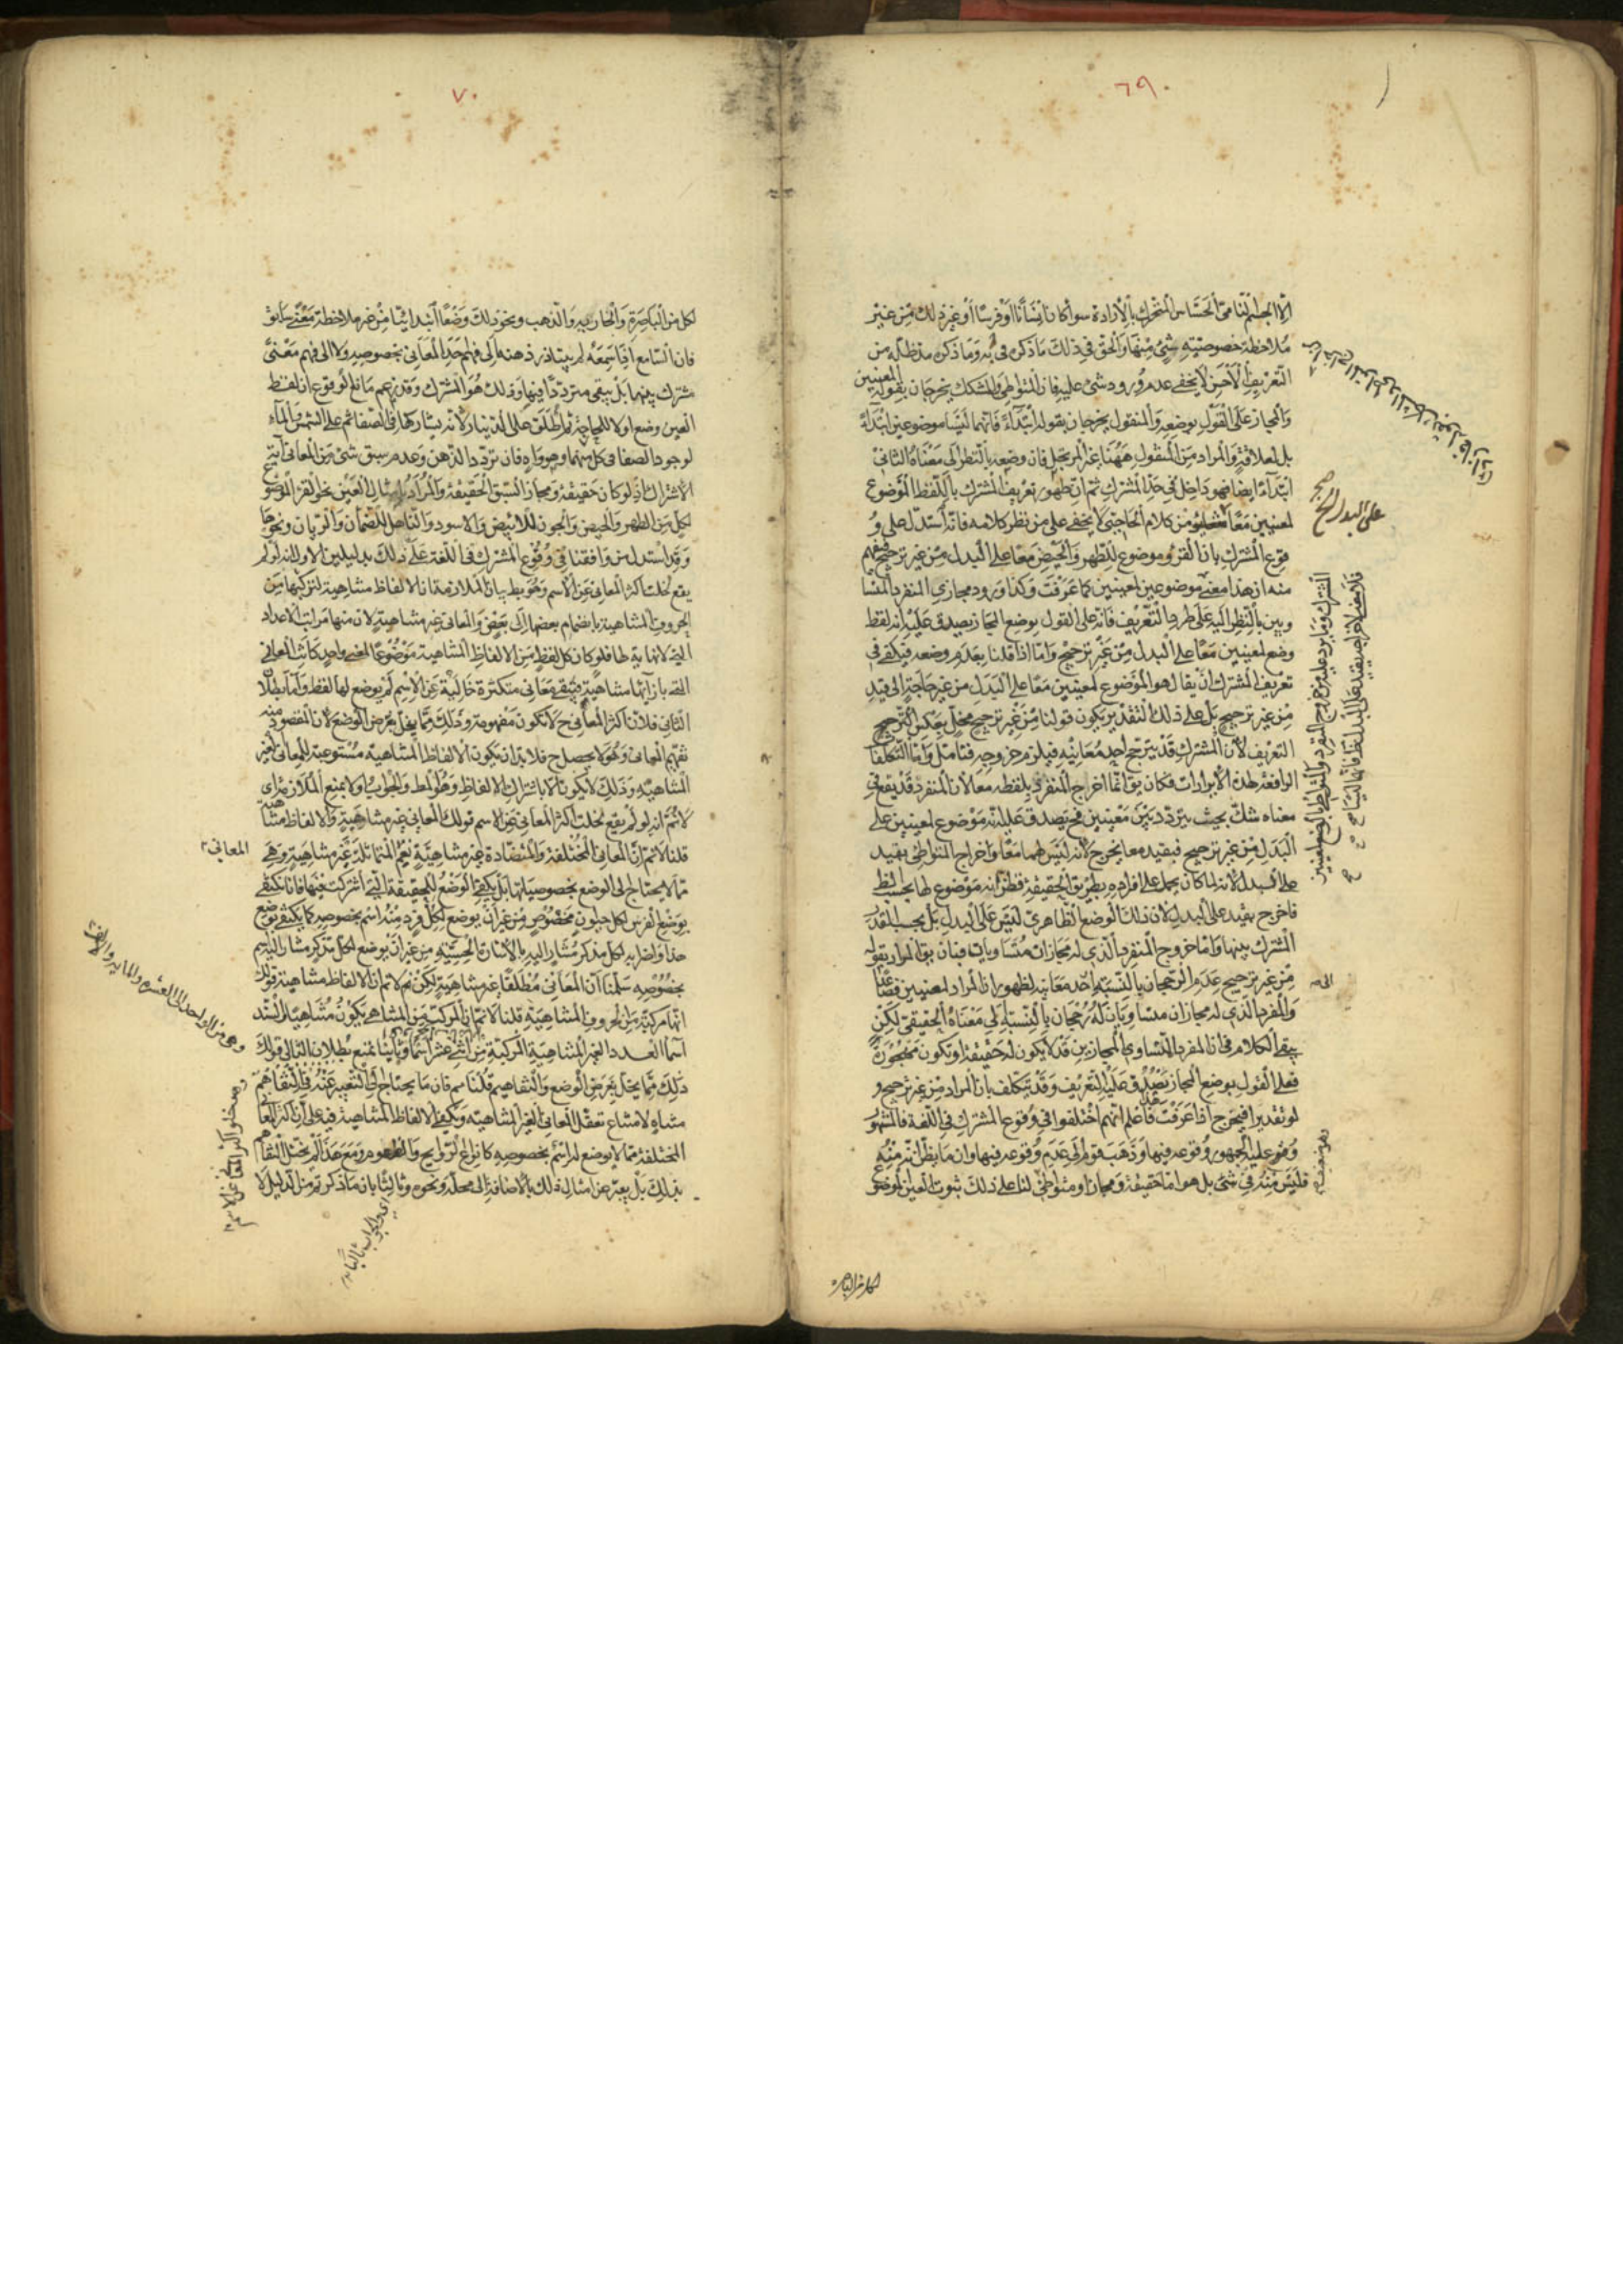 ٦٩
الا الجسم النامى الحساس المتحرك بالارادة سواء كان انسانا او فرسا او غير ذلك من غير
ملاحظة خصوصيته شئ منها والحق فى ذلك ما ذكر فى وما ذكر من
التعريف الاخير لا يخفى عدم ورود شئ عليه فان المتواطى والمشكك يخرجان بقوله لمعنيين
والمجاز على القول بوضعه والمنقول يخرجان بقوله ابتداء فانهما ليسا موضوعين ابتداء
بل لعلاقة والمراد من المنقول ههنا غير المرتجل فان وضعه بالنظر الى معناه الثانى
ابتداء ايضا فهو داخل فى حد المشترك ثم ان ظهور تعريف المشترك باللفظ الموضوع
لمعنيين معا من كلام الحاجبى لا يخفى على من نظر كلامه فانه استدل على و
قوع المشترك بان القرء موضوع للطهر والحيض معا على البدل من غير ترجيح فيفهم
منه ان هذا معنى موضوعين لمعنيين كما عرفت وكذا ورود مجازى المنفرد المتسا
ويين بالنظر اليه على طرد التعريف فانه على القول بوضع المجاز يصدق عليه انه لفظ
وضع لمعنيين معا على البدل من غير ترجيح واما اذا قلنا بعدم وضعه فيكفى فى
تعريف المشترك ان يقال هو الموضوع لمعنيين معا على البدل من غير حاجة الى قيد
من غير ترجيح بل على ذلك التقدير يكون قولنا من غير ترجيح مخل بعكس
التعريف لان المشترك قد يترجح احد معانيه فيلزم خروجه فتامل واما التكلفات
الواقعة لهذه الايرادات فكان يق انما اخرج المنفرد بلفظه معا لان المنفرد قد يقع فى
معناه شك بحيث يتردد بين معنيين فح يصدق عليه انه موضوع لمعنيين على
البدل من غير ترجيح فبقيد معا يخرج لانه ليس لهما معا واخراج المتواطى بقيد
على البدل لانه لما كان يحمل على افراده بطريق الحقيقة فظن انه موضوع لها بحسب الظ
فاخرج بقيد على البدل لان ذلك الوضع الظاهرى ليس على البدل بل بحسب القدر
المشترك بينها واما خروج المنفرد الذى له مجازان متساويان فبان يق المراد بقوله
من غير ترجيح عدم الرجحان بالنسبة احد معانيه لظهور ان المراد لمعنيين فصاعدا
والمفرد الذى له مجازان متساويان له رجحان بالنسبة الى معناه الحقيقى لكن
يبقى الكلام فى ان المفرد المتساوى المجازين قد لا يكون له حقيقة او تكون مهجورة
فعلى القول بوضع المجاز يصدق عليه التعريف وقد يتكلف بان المراد من غير ترجيح و
لو تقديرا فيخرج اذا عرفت فاعلم انهم اختلفوا فى وقوع المشترك فى اللغة فالمشهور
وهو عليه الجمهور وقوعه فيها وذهب قوم الى عدم وقوعه فيها وان ما يظن انه منه
فليس منه فى شئ بل هو اما حقيقة ومجاز او متواطئ لنا على ذلك ثبوت العين لموضوع
على البدل
الى
لكل من الباصرة
٧٠
لكل من الباصرة والجارية والذهب ونحو ذلك وضعا ابتدائيا من غير ملاحظة معنى سابق
فان السامع اذا سمعه لم يتبادر ذهنه الى فهم احد المعانى بخصوصه ولا الى فهم معنى
مشترك بينهما بل يبقى مترددا فيها وذلك هو المشترك وقد زعم مانع الوقوع ان لفظ
العين وضع اولا للجارحة ثم اطلق على الدينار لانه يشاركها فى الصفاء ثم على الشمس والماء
لوجود الصفا فى كل منهما وهو واه فان تردد الذهن وعدم سبق شئ من المعانى اية
الاشتراك اذ لو كان حقيقة ومجازا لسبق الحقيقة والمراد بامثال العين نحو القرء الموضوع
لكل من الطهر والحيض والجون للابيض والاسود والناهل للضمأن والريان ونحوها
وقد استدل من وافقنا فى وقوع المشترك فى اللغة على ذلك بدليلين الاول انه لو لم
يقع لخلت اكثر المعانى عن الاسم وهو بط بيان الملازمة ان الالفاظ متناهية لتركبها من
الحروف المتناهية بانضمام بعضها الى بعض والمعانى غير متناهية لان منها مراتب الاعداد
التى لا نهاية لها فلو كان كل لفظ من الالفاظ المتناهية موضوعا لمعنى واحد كانت المعانى
التى بازائها متناهية فيبقى معانى متكثرة خالية عن الاسم لم يوضع لها لفظ واما بطلان
الثانى فلان اكثر المعانى ح لا تكون مفهومة وذلك مما يخل بغرض الوضع لان المقصود منه
تفهيم المعانى وهو لا يحصل ح فلا بد ان يكون الالفاظ المتناهية مستوعبة للمعانى الغير
المتناهية وذلك لا يكون الا باشتراك الالفاظ وهو المط والجواب اولا بمنع الملازمة اى
لا نم انه لو لم يقع لخلت اكثر المعانى عن الاسم قولك المعانى غير متناهية والالفاظ متناهية
قلنا لا نم ان المعانى المختلفة والمتضادة غير متناهية نعم المتماثلة غير متناهية وهى
مما لا يحتاج الى الوضع بخصوصياتها بل يكفى الوضع للحقيقة التى اشتركت فيها فانا نكتفى
بوضع الفرس لكل حيوان مخصوص من غير ان يوضع لكل فرد منه اسم بخصوصه كما يكتفى بوضع
هذا واضرابه لكل مذكر مشار اليه بالاشارة الحسية من غير ان يوضع لكل مذكر مشار اليه اسم
بخصوصه سلمنا ان المعانى مطلقا غير متناهية لكن لا نم ان الالفاظ متناهية قولك
انها مركبة من الحروف المتناهية قلنا لا نم ان المركب من المتناهى يكون متناهيا السند
اسماء العدد الغير المتناهية المركبة من اثنى عشر اسما وثانيا بمنع بطلان التالى قولك
ذلك مما يخل بغرض الوضع والتفاهيم قلنا مم فان ما يحتاج الى التعبير عنه فى التفاهم
متناه لامتناع تعقل المعانى الغير المتناهية ويكفى الالفاظ المتناهية فيه على ان اكثر المعانى
المختلفة مما لا يوضع له اسم بخصوصه كانواع الروايح والطعوم ومع هذا لم يختل التفاهم
بذلك بل يعبر عن امثال ذلك بالاضافة الى محله ونحوه وثالثا بان ما ذكرتم من الدليل لا
المعانى
وهى من الواحد الى العشرة والمايه والالف
وهو خلو اكثر المعانى عن الاسم
اى والجواب ثالثا